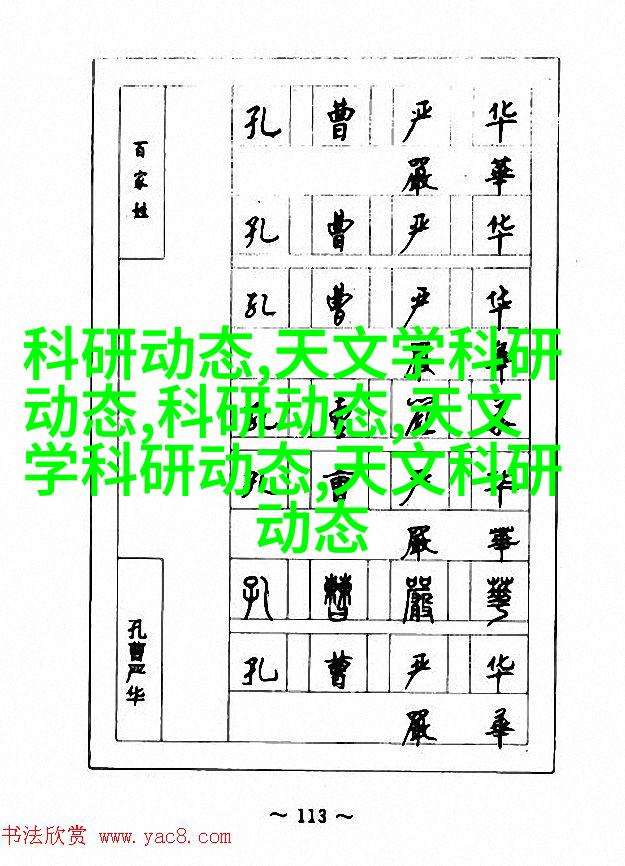 百家姓
孔 曹 严 华
嚴 華
孔 曹 严 华
孔 曹 严 华
嚴 華
孔 曹 严 华
嚴 華
孔 曹 嚴 華
孔 曹 严 华
嚴 華
孔曹严华
科研动态,天文学科研
动态,科研动态,天文
学科研动态,天文科研
动态
~ 113 ~
书法欣赏 www.yac8.com